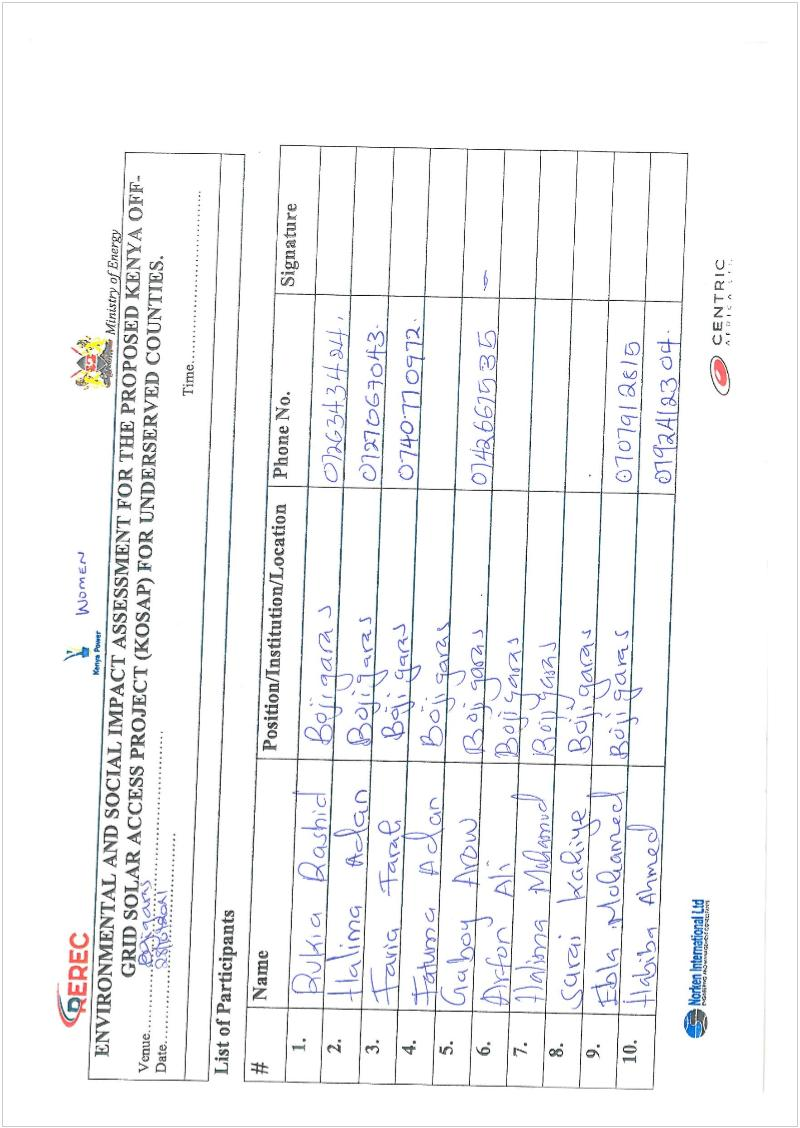 REREC
Kenya Power
WOMEN
Ministry of Energy
ENVIRONMENTAL AND SOCIAL IMPACT ASSESSMENT FOR THE PROPOSED KENYA OFF-
GRID SOLAR ACCESS PROJECT (KOSAP) FOR UNDERSERVED COUNTIES.
Venue.....Bojigaras..... Time.....
Date.....
List of Participants
# Name Position/Institution/Location Phone No. Signature
1. Rukia Rashid Bojigaras 0726343424.
2. Halima Adan Bojigaras 0727067043.
3. Faria Farah Bojigaras 0740770972.
4. Fatuma Adan Bojigaras
5. Gaboy Arow Bojigaras 0742667535 -
6. Arfon Ali Bojigaras
7. Halima Mohamud Bojigaras
8. Surai Kahiye Bojigaras
9. Ebla Mohamed Bojigaras 0707912815
10. Habiba Ahmed 0792412304.
Norken International Ltd
CENTRIC
AFRICA LTD.